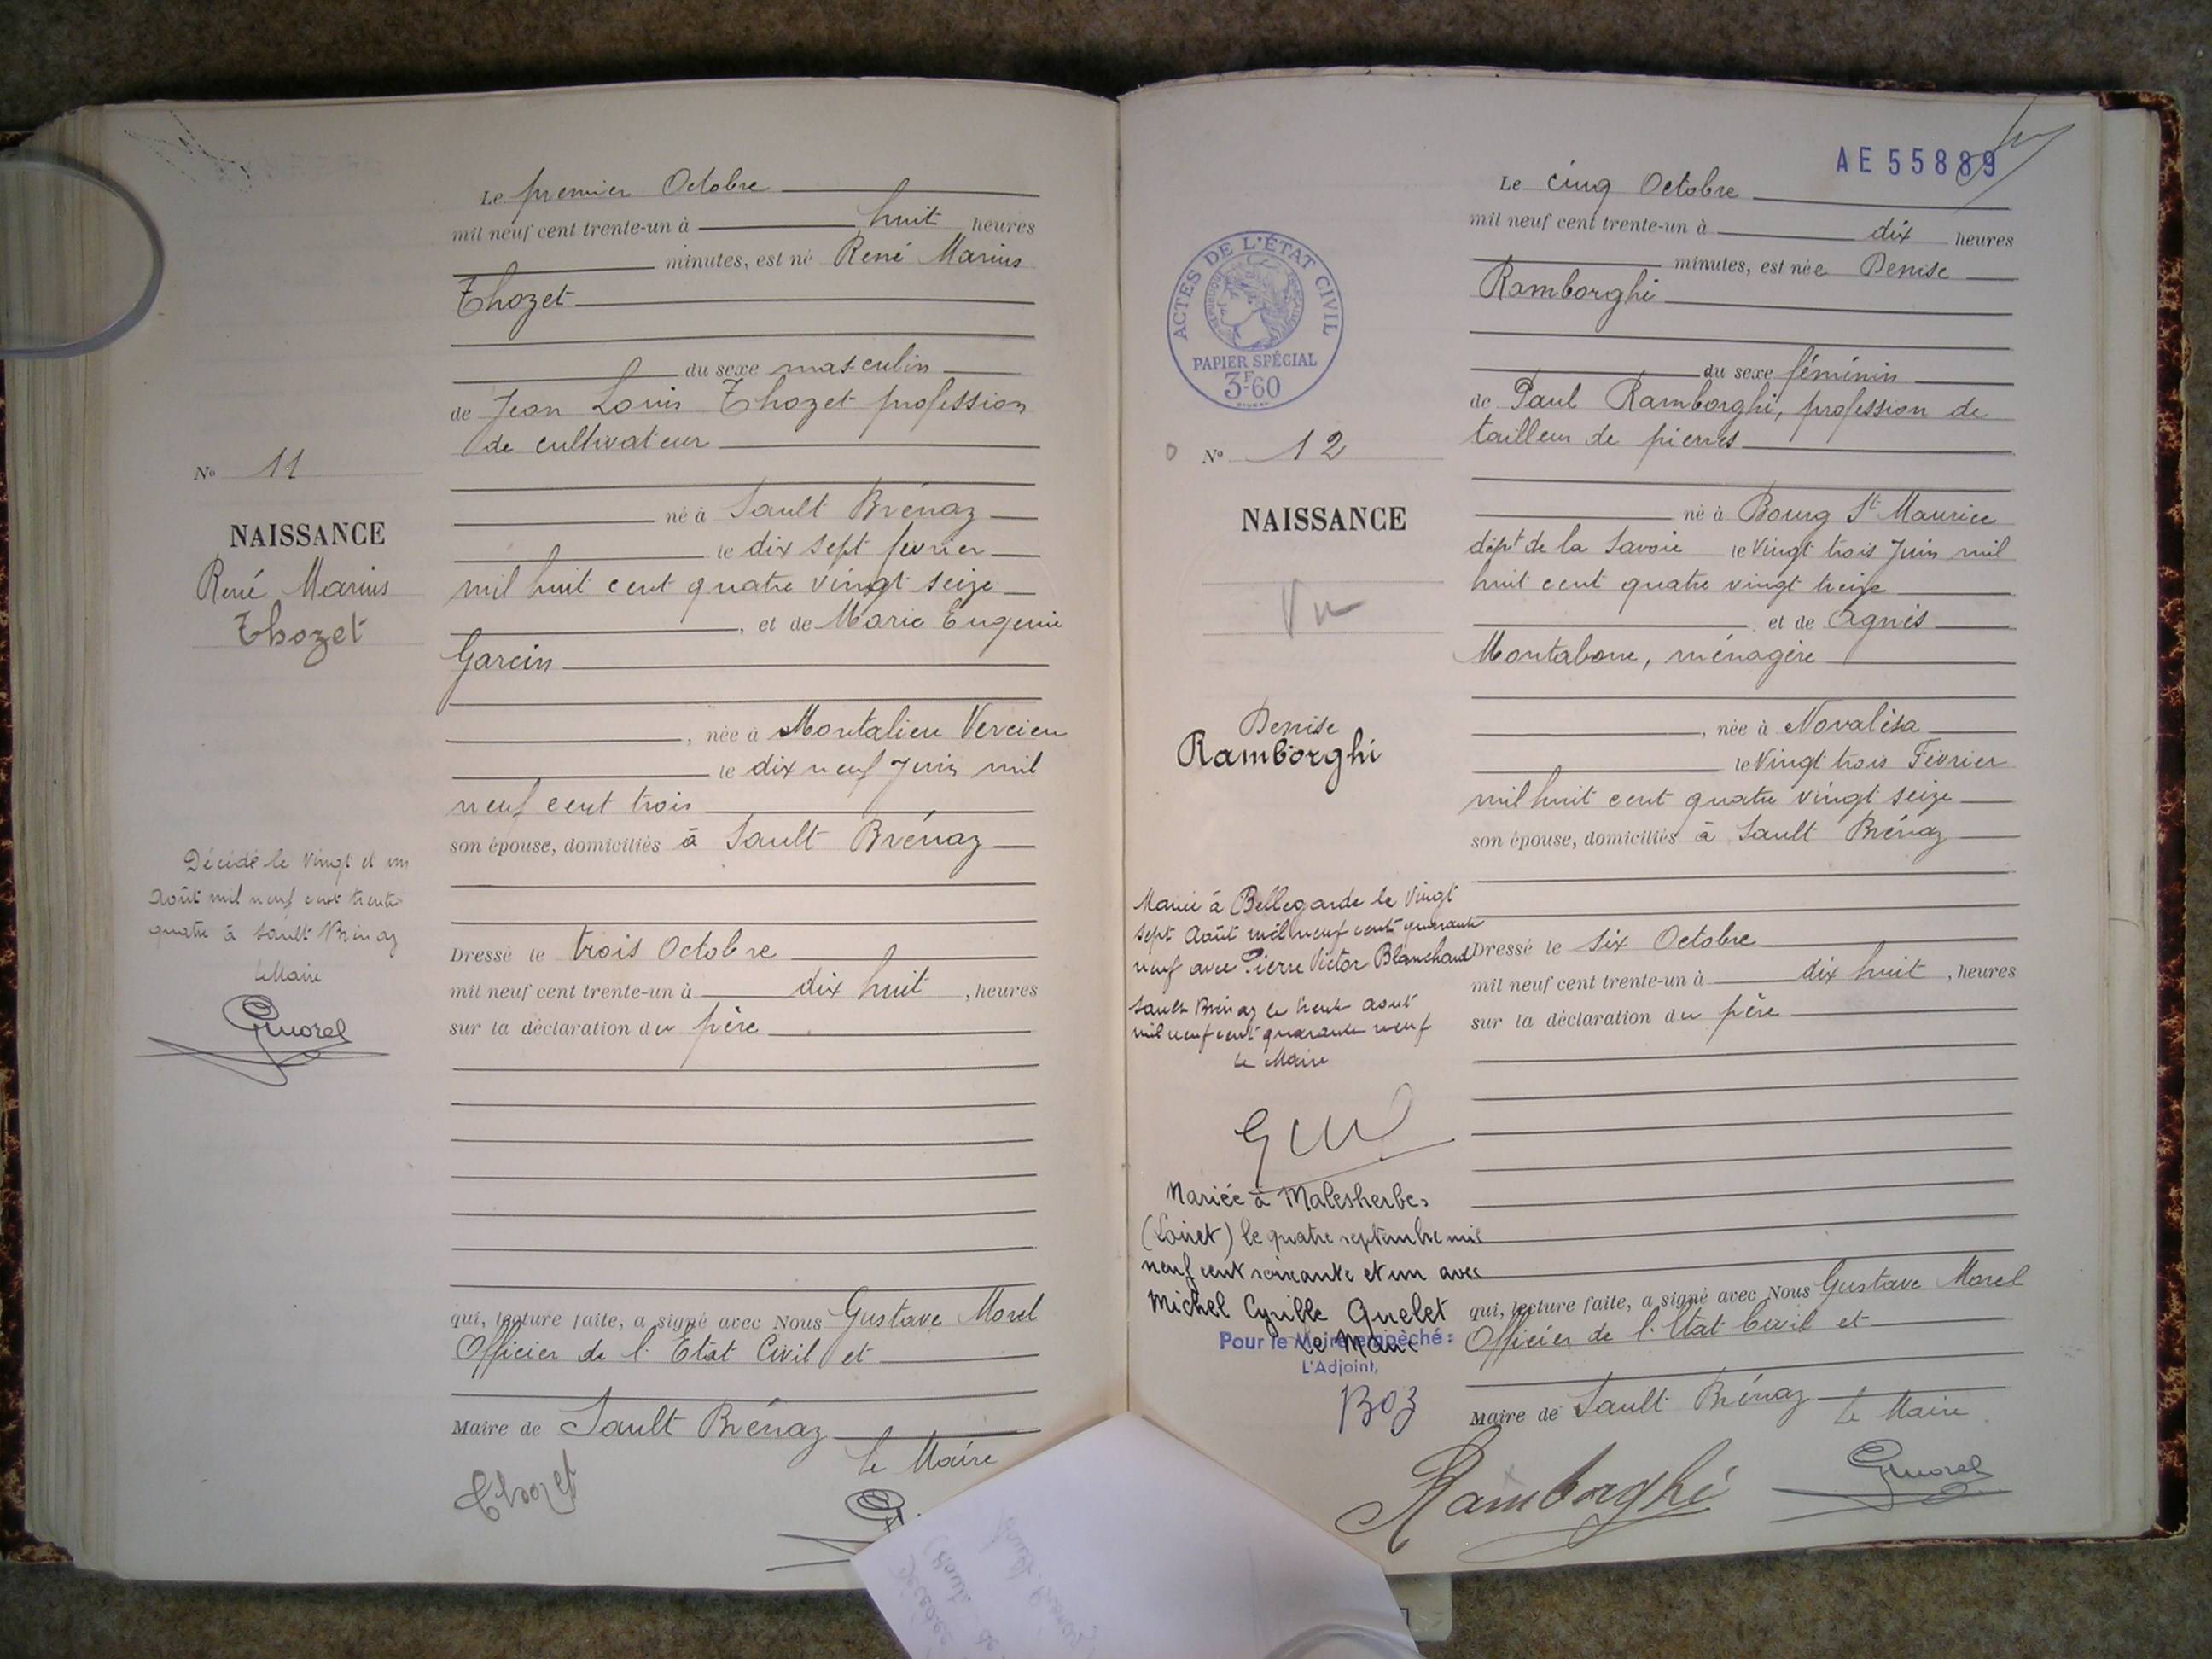 Le premier Octobre
mil neuf cent trente-un à huit heures
minutes, est né René Marius
Thozet
du sexe masculin
de Jean Louis Thozet profession
de cultivateur
né à Sault Brénaz
le dix sept février
mil huit cent quatre vingt seize
, et de Marie Eugenie
Garcin
, née à Montalieu Vercieu
le dix neuf Juin mil
neuf cent trois
son épouse, domiciliés à Sault Brénaz
Dressé le trois Octobre
mil neuf cent trente-un à dix huit, heures
sur la déclaration du père
qui, lecture faite, a signé avec Nous Gustave Morel
Officier de l'Etat Civil et
Maire de Sault Brénaz
le Maire
Thozet
No 11
NAISSANCE
René Marius
Thozet
Décédé le vingt et un
Août mil neuf cent trente
quatre à Sault Brénaz
le Maire
Gmorel
AE 55889
Le cinq Octobre
mil neuf cent trente-un à dix heures
minutes, est née Denise
Ramborghi
du sexe féminin
de Paul Ramborghi, profession de
tailleur de pierres
né à Bourg St Maurice
dépt de la Savoie le Vingt trois Juin mil
huit cent quatre vingt treize
et de Agnès
Montabone, ménagère
, née à Novalésa
le Vingt trois Février
mil huit cent quatre vingt seize
son épouse, domiciliés à Sault Brénaz
Dressé le six Octobre
mil neuf cent trente-un à dix huit, heures
sur la déclaration du père
qui, lecture faite, a signé avec Nous Gustave Morel
Officier de l'Etat Civil et
Maire de Sault Brénaz
le Maire
Ramborghi
Gmorel
ACTES DE L'ÉTAT CIVIL
RÉPUBLIQUE FRANÇAISE
PAPIER SPÉCIAL
3F60
No 12
NAISSANCE
Vu
Denise
Ramborghi
Mariée à Bellegarde le Vingt
sept Août mil neuf cent quarante
neuf avec Pierre Victor Blanchard
Sault Brénaz le trente août
mil neuf cent quarante neuf
le Maire
Mariée à Malesherbes
(Loiret) le quatre septembre mil
neuf cent soixante et un avec
Michel Cyrille Quelet
Le Maire
Pour le Maire empêché:
L'Adjoint,
Boz